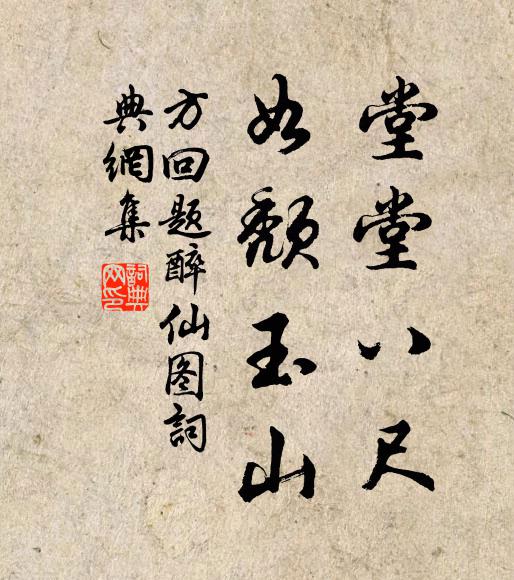 堂堂八尺
如頹玉山
方回题醉仙图詞
典網集
詞典網印